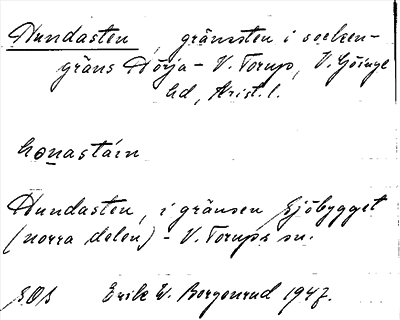 Hundasten, gränssten i socken-
gräns Hörja - V. Torup, V. Göinge
hd, Krist. l.
honastain
Hundasten, i gränsen Sjöbygget
(norra delen) - V. Torups sn.
Erik W. Borgenrud 1947.